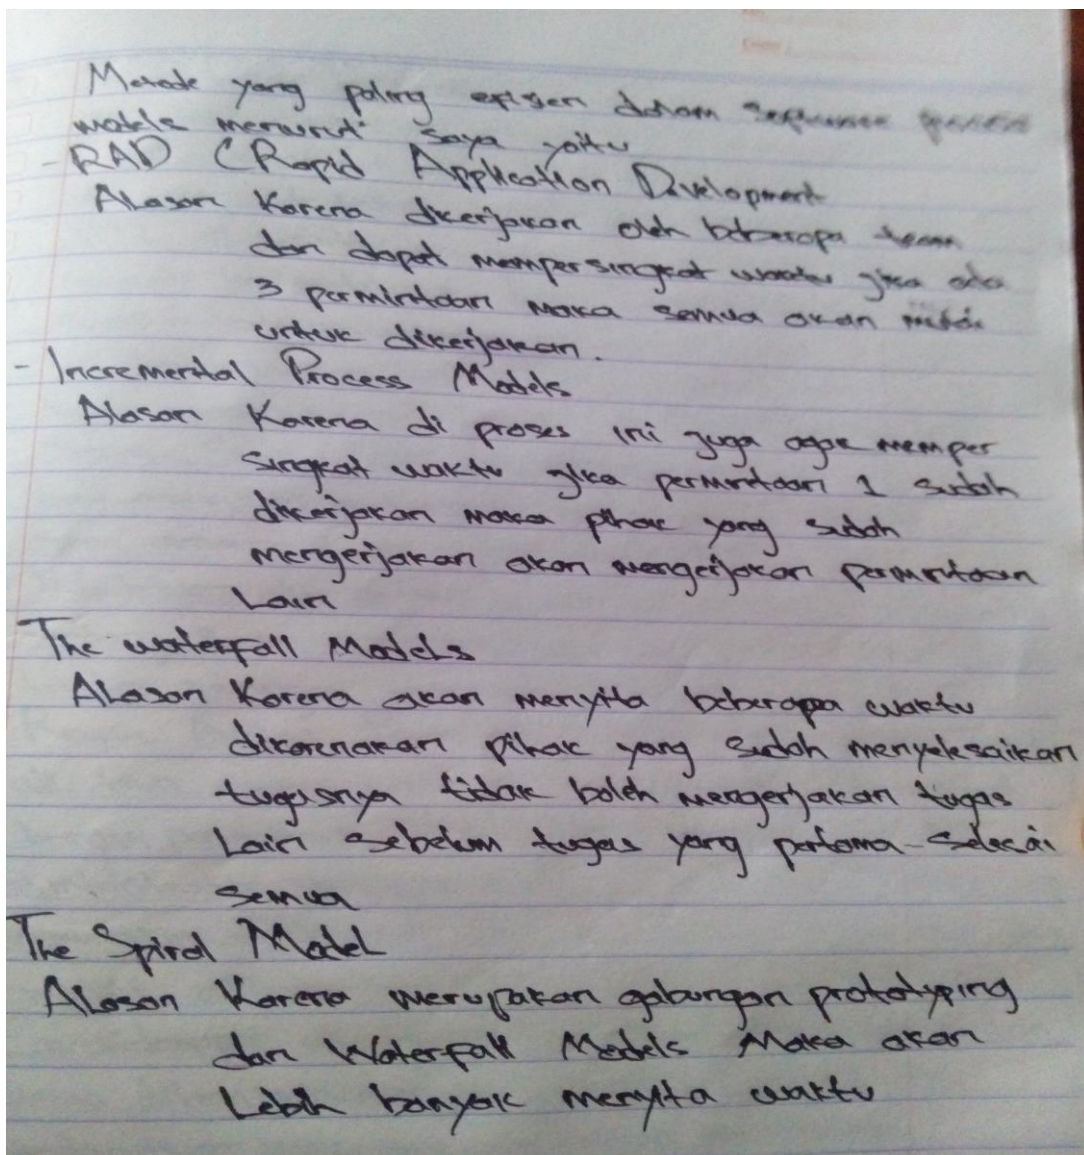 Metode yang paling efisien dalam
models menurut saya yaitu
- RAD (Rapid Application Development
Alasan Karena dikerjakan oleh beberapa team
dan dapat mempersingkat waktu jika ada
3 permintaan maka semua akan
untuk dikerjakan.
- Incremental Process Models
Alasan Karena di proses ini juga agak memper
singkat waktu jika permintaan 1 sudah
dikerjakan maka pihak yang sudah
mengerjakan akan mengerjakan permintaan
Lain
The waterfall Models
Alasan Karena akan menyita beberapa waktu
dikarenakan pihak yang sudah menyelesaikan
tugasnya tidak boleh mengerjakan tugas
Lain sebelum tugas yang pertama selesai
semua
The Spiral Model
Alasan Karena merupakan gabungan prototyping
dan Waterfall Models Maka akan
Lebih banyak menyita waktu